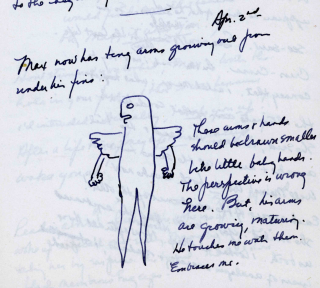 to the
Apr. 2nd.
Max now has tiny arms growing out from
under his fins:
These arms & hands
should be drawn smaller
like little baby hands.
The perspective is wrong
here. But, his arms
are growing, maturing.
He touches me with them.
Embraces me.